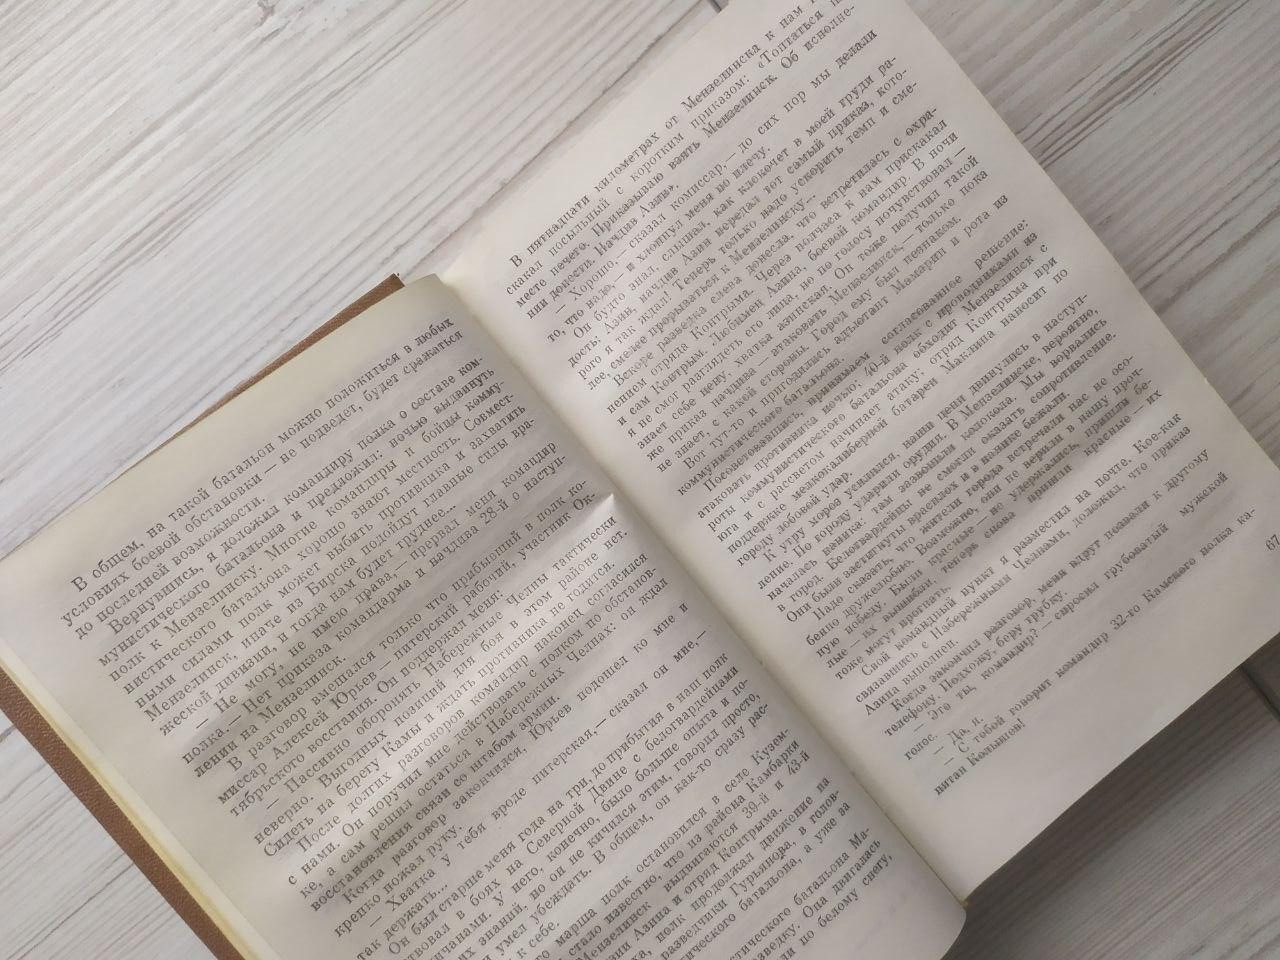 В общем, на такой батальон можно положиться в любых
условиях боевой обстановки — не подведет, будет сражаться
до последней возможности.
Вернувшись, я доложил командиру полка о составе ком-
мунистического батальона и предложил: ночью выдвинуть
полк к Мензелинску. Многие командиры и бойцы комму-
нистического батальона хорошо знают местность. Совмест-
ными силами полк может выбить противника и захватить
Мензелинск, иначе из Бирска подойдут главные силы вра-
жеской дивизии, и тогда нам будет труднее...
— Не могу, не имею права,— прервал меня командир
полка.— Нет приказа командарма и начдива 28-й о наступ-
лении на Мензелинск.
В разговор вмешался только что прибывший в полк ко-
миссар Алексей Юрьев — питерский рабочий, участник Ок-
тябрьского восстания. Он поддержал меня:
— Пассивно оборонять Набережные Челны тактически
неверно. Выгодных позиций для боя в этом районе нет.
Сидеть на берегу Камы и ждать противника не годится.
После долгих разговоров командир наконец согласился
с нами. Он поручил мне действовать с полком по обстанов-
ке, а сам решил остаться в Набережных Челнах: он ждал
восстановления связи со штабом армии.
Когда разговор закончился, Юрьев подошел ко мне и
крепко пожал руку.
— Хватка у тебя вроде питерская,— сказал он мне,—
так держать...
Он был старше меня года на три, до прибытия в наш полк
ствовал в боях на Северной Двине с белогвардейцами
ичанами. У него, конечно, было больше опыта и по-
их знаний, но он не кичился этим, говорил просто,
и умел убеждать. В общем, он как-то сразу рас-
к себе.
марша полк остановился в селе Кузем-
стало известно, что из района Камбарки
Мензелинск выдвигаются 39-й и 43-й
зии Азина и отряд Контрыма.
ха, полк продолжал движение на
разведчики Гурьянова, в голов-
тического батальона, а уже за
стического батальона Ма-
зведку. Она двигалась
и по белому снегу,
В пятнадцати километрах от Мензелинска к нам
скакал посыльный с коротким приказом: «Топтаться
месте нечего. Приказываю взять Мензелинск. Об исполне-
нии донести. Начдив Азин».
— Хорошо,— сказал комиссар,— до сих пор мы делали
то, что надо,— и хлопнул меня по плечу.
Он будто знал, слышал, как клокочет в моей груди ра-
дость: Азин, начдив Азин передал тот самый приказ, кото-
рого я так ждал! Теперь только надо ускорить темп и сме-
лее, смелее прорываться к Мензелинску...
Вскоре разведка слева донесла, что встретилась с охра-
нением отряда Контрыма. Через полчаса к нам прискакал
и сам Контрым. Любимец Азина, боевой командир. В ночи
я не смог разглядеть его лица, но по голосу почувствовал —
знает себе цену, хватка азинская. Он тоже получил такой
же приказ начдива — атаковать Мензелинск, только пока
не знает, с какой стороны. Город ему был незнаком.
Вот тут-то и пригодились адъютант Мамарин и рота из
коммунистического батальона.
Посоветовавшись, принимаем согласованное решение:
атаковать противника ночью; 40-й полк с проводниками из
роты коммунистического батальона обходит Мензелинск с
юга и с рассветом начинает атаку; отряд Контрыма при
поддержке мелкокалиберной батареи Маклина наносит по
городу лобовой удар.
К утру мороз усилился, наши цепи двинулись в наступ-
ление. По городу ударили орудия. В Мензелинске, вероятно,
началась паника: там зазвонили колокола. Мы ворвались
в город. Белогвардейцы не смогли оказать сопротивление.
Они были застигнуты врасплох и в панике бежали.
Надо сказать, что жители города встречали нас не осо-
бенно дружелюбно. Возможно, они не верили в нашу проч-
ную победу. Были красные — не удержались, пришли бе-
лые — их вышибли, теперь снова пришли красные — их
тоже могут прогнать.
Свой командный пункт я разместил на почте. Кое-как
связавшись с Набережными Челнами, доложил, что приказ
Азина выполнен.
Когда закончил разговор, меня вдруг позвали к другому
телефону. Подхожу, беру трубку.
— Это ты, командир? — спросил грубоватый мужской
голос.
— Да, я.
— С тобой говорит командир 32-го Камского полка ка-
питан Кольцов!
67